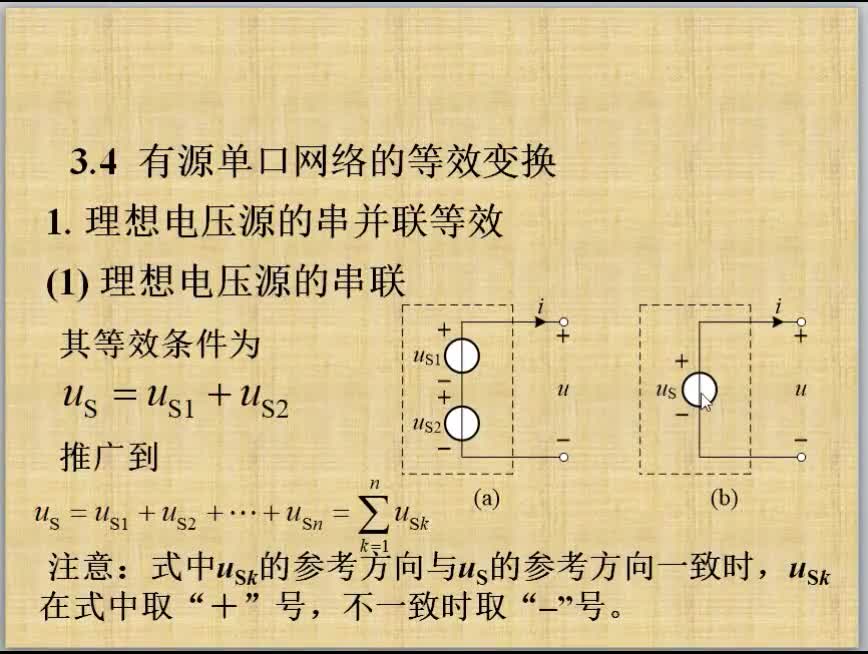 3.4 有源单口网络的等效变换
1. 理想电压源的串并联等效
(1) 理想电压源的串联
其等效条件为
uS = uS1 + uS2
推广到
uS = uS1 + uS2 + ··· + uSn = ∑ uSk
n
k=1
i
+
uS1
−
+
uS2
−
+
u
−
(a)
i
+
uS
−
+
u
−
(b)
注意：式中uSk的参考方向与uS的参考方向一致时，uSk
在式中取“＋”号，不一致时取“–”号。